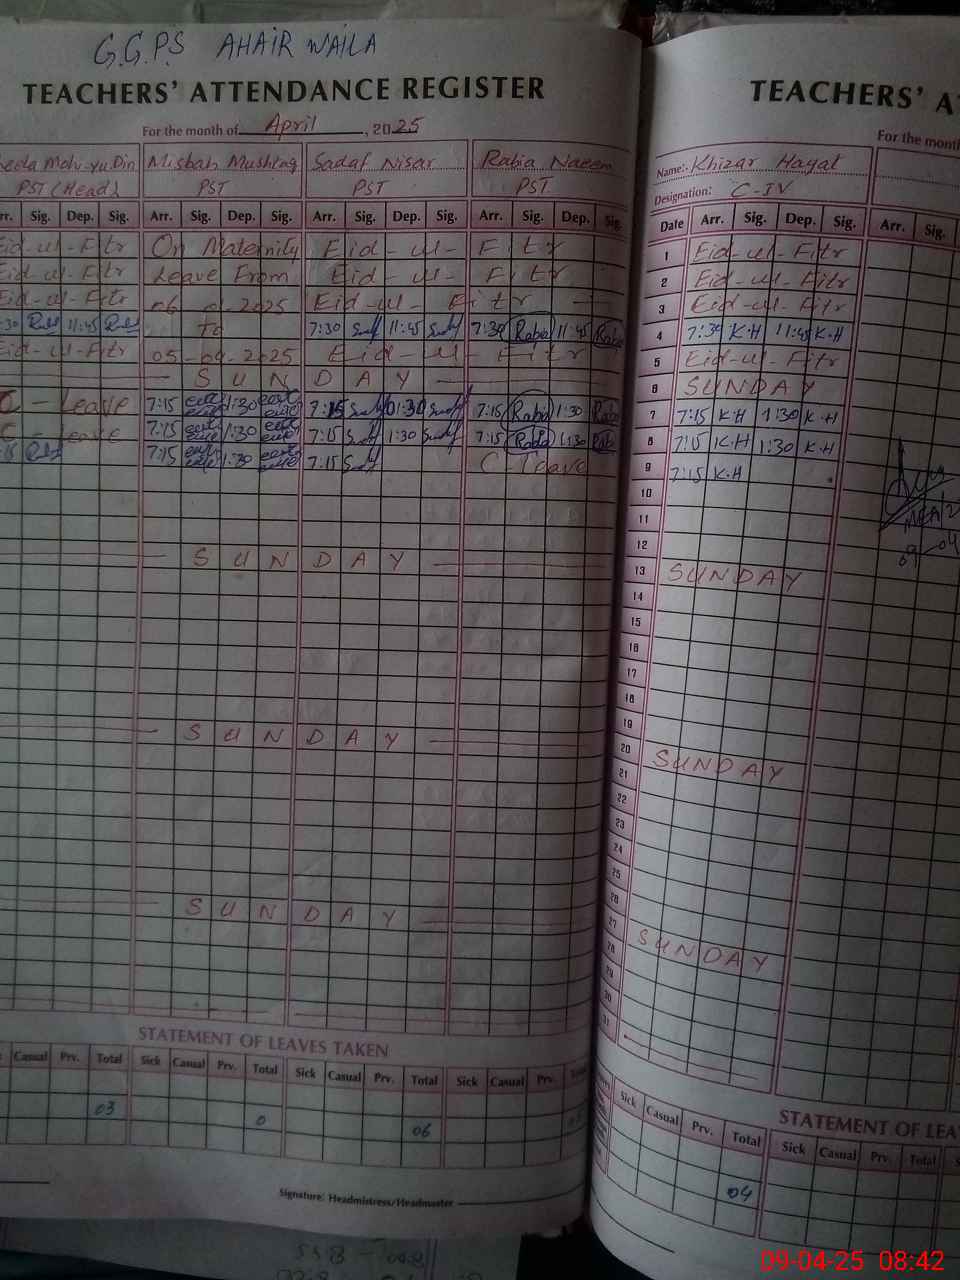 G.G.P.S AHAIR WAILA
TEACHERS' ATTENDANCE REGISTER
For the month of April, 2025
eeda Mohi-yu-Din Misbah Mushtaq Sadaf Nisar Rabia Naeem
PST (Head) PST PST PST
Arr. Sig. Dep. Sig. Arr. Sig. Dep. Sig. Arr. Sig. Dep. Sig. Arr. Sig. Dep. Sig.
Eid-ul-Fitr On Maternity Eid-ul-Fitr
Eid-ul-Fitr Leave From Eid-ul-Fitr
Eid-ul-Fitr 2025 Eid-ul-Fitr
:30 11:45 To 7:30 11:45 7:30 Raba 11:45 Raba
Eid-ul-Fitr 05-04-2025 Eid-ul-Fitr
SUNDAY
C-Leave 7:15 1:30 7:15 01:30 7:15 Raba 1:30 Raba
C Leave 7:15 1:30 7:15 1:30 7:15 Raba 1:30 Rab
:15 7:15 1:30 7:15 C-Leave
SUNDAY
SUNDAY
SUNDAY
STATEMENT OF LEAVES TAKEN
Casual Prv. Total Sick Casual Prv. Total Sick Casual Prv. Total Sick Casual Prv. Total
03 0 06
Signature: Headmistress/Headmaster
TEACHERS' A
For the month
Name:- Khizar Hayat
Designation: C-IV
Date Arr. Sig. Dep. Sig. Arr. Sig.
1 Eid-ul-Fitr
2 Eid-ul-Fitr
3 Eid-ul-Fitr
4 7:30 K.H 11:45 K.H
5 Eid-ul-Fitr
6 SUNDAY
7 7:15 K.H 1:30 K.H
8 7:15 K.H 1:30 K.H
9 7:15 K.H
10
11
12
13 SUNDAY
14
15
16
17
18
19
20 SUNDAY
21
22
23
24
25
26
27 SUNDAY
28
29
30
31
MEA
09-04
STATEMENT OF LEA
Sick Casual Prv. Total Sick Casual Prv. Total
04
09-04-25 08:42